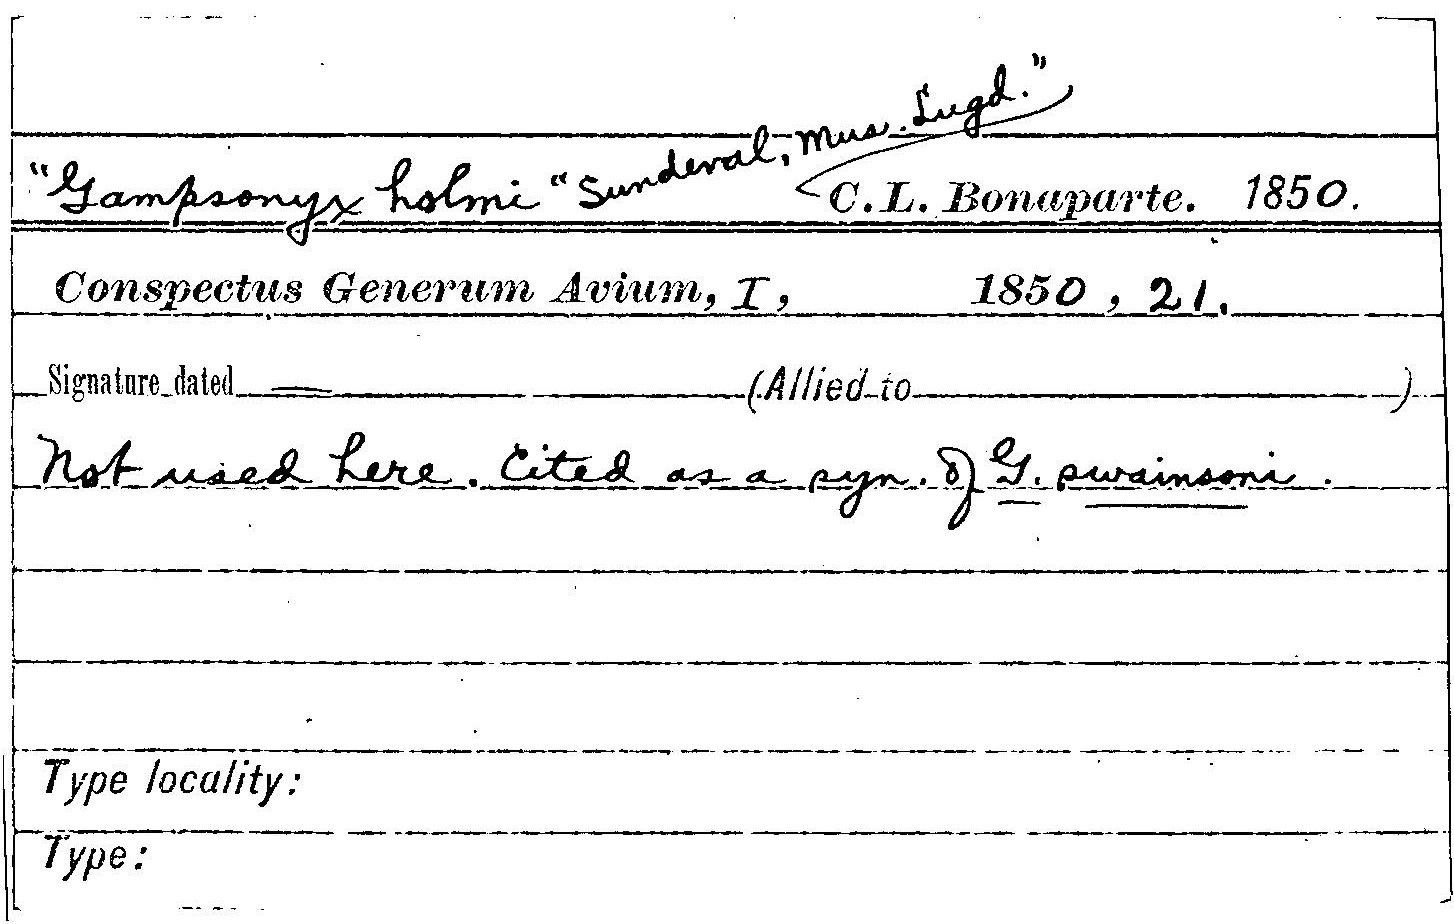 "Gampsonyx holmi "Sundeval, Mus. Lugd." C. L. Bonaparte. 1850.
Conspectus Generum Avium, I, 1850, 21.
Signature dated — (Allied to )
Not used here. Cited as a syn. of G. swainsoni.
Type locality:
Type: